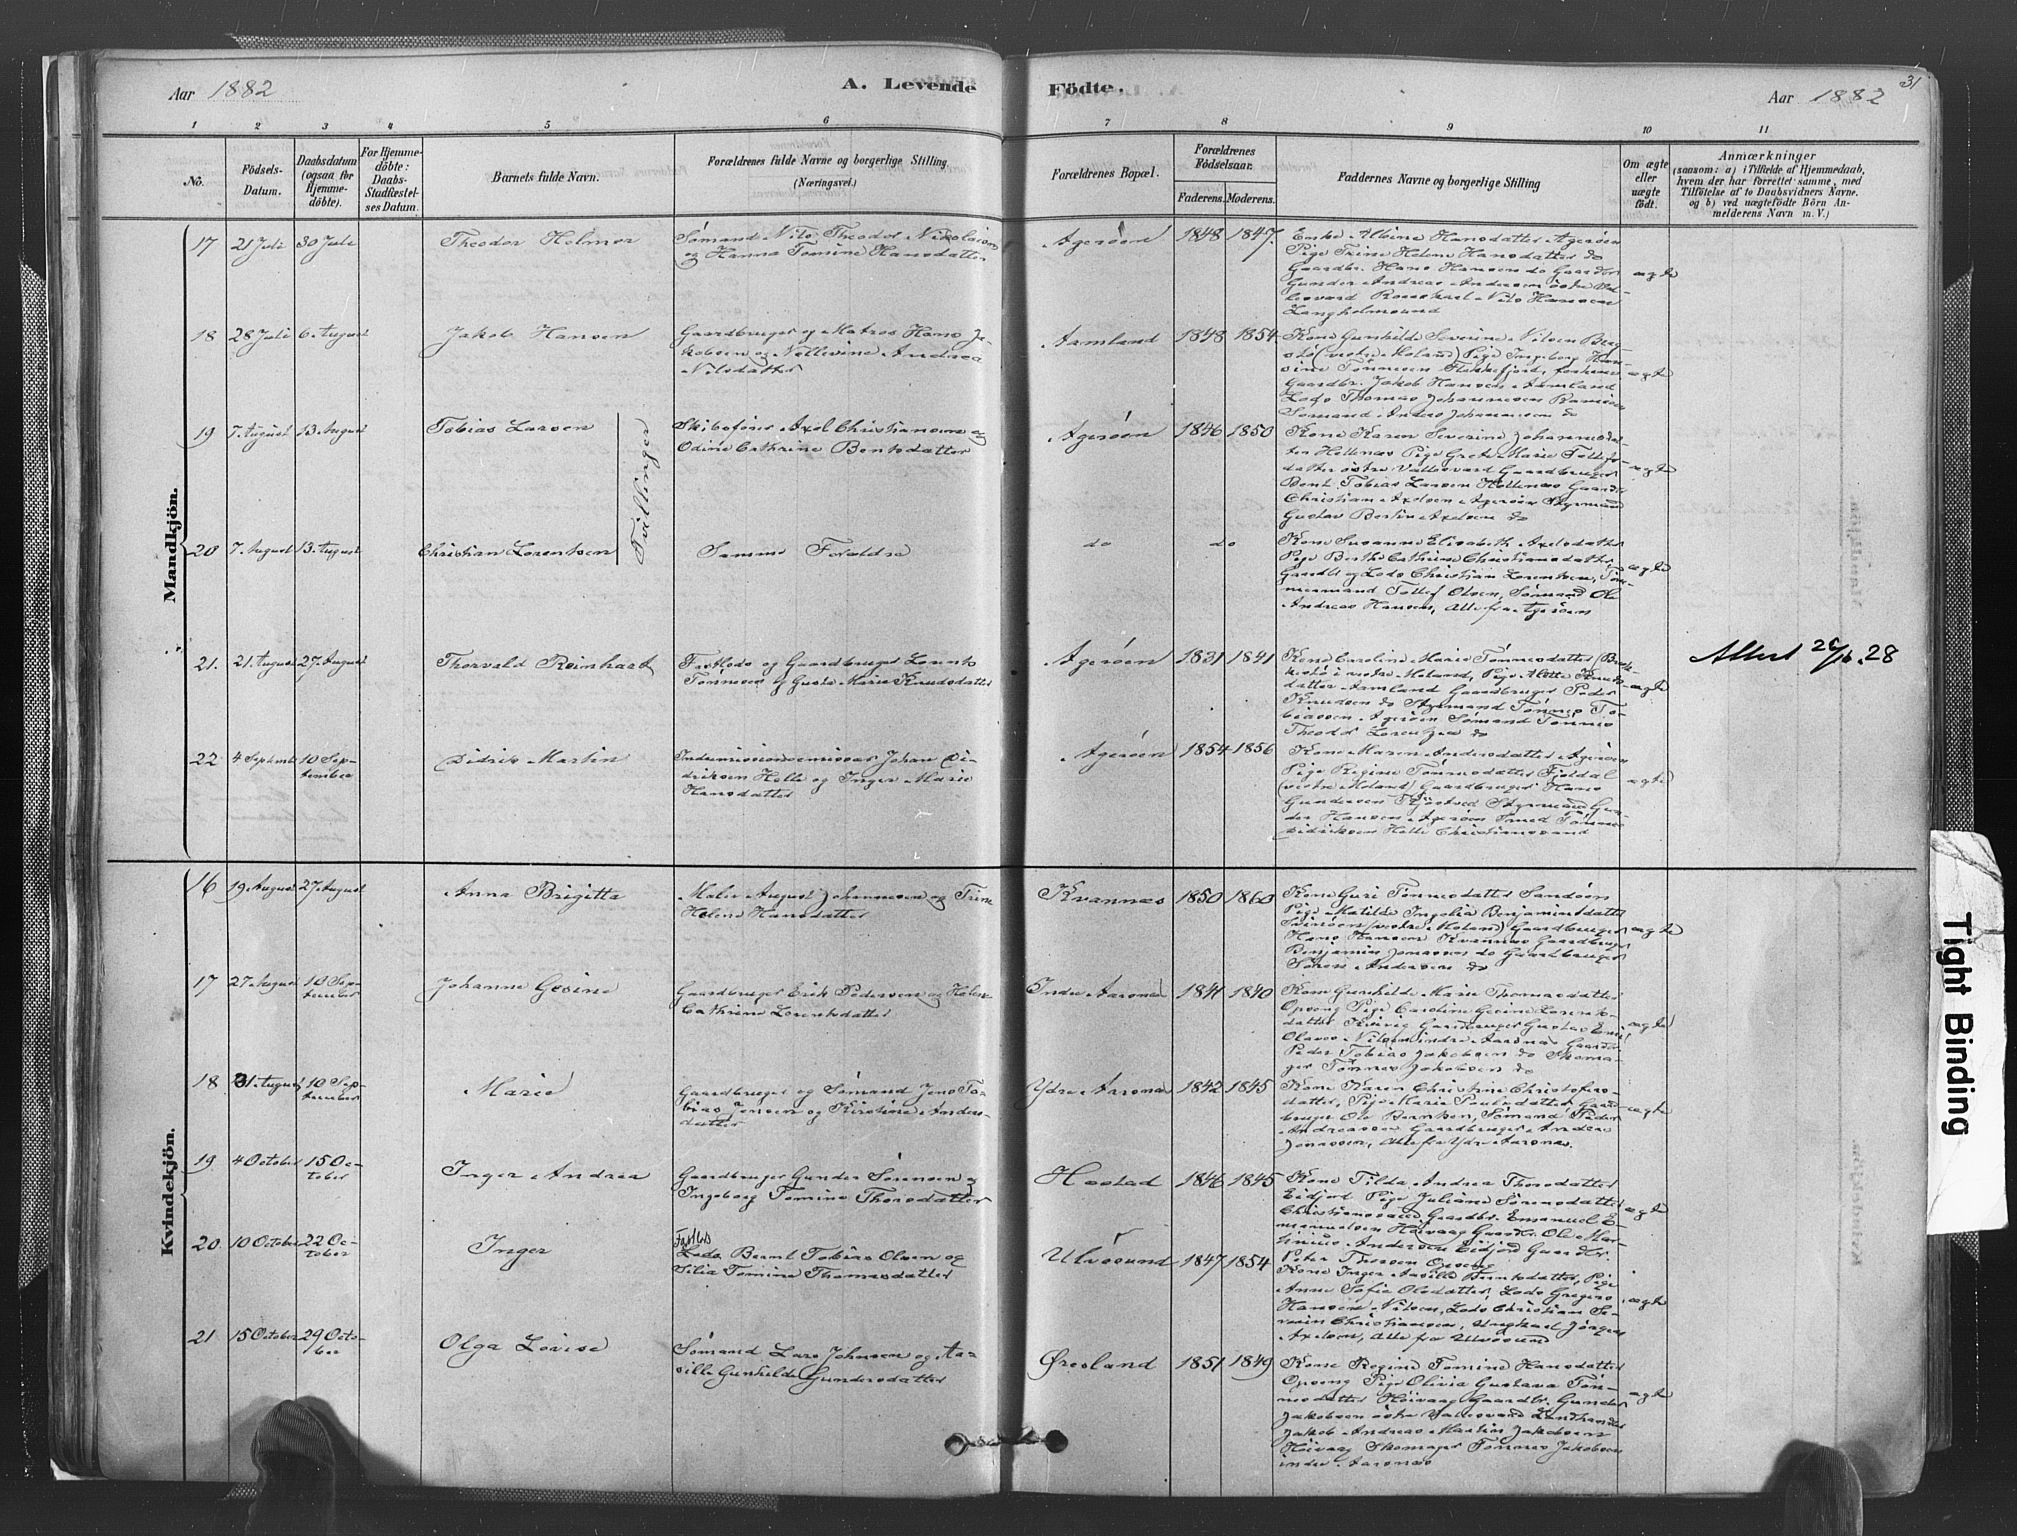 Aar 1882
A. Levende
Födte.
Aar 1882
31
1 2 3 4 5 6 7 8 9 10 11
No.
Födsels-
Datum.
Daabsdatum
(ogsaa for
Hjemme-
döbte).
For Hjemme-
döbte:
Daabs-
Stadfæstel-
ses Datum.
Barnets fulde Navn.
Forældrenes fulde Navne og borgerlige Stilling
(Næringsvei.)
Forældrenes Bopæl.
Forældrenes
Födselsaar.
Faderens. Moderens.
Faddernes Navne og borgerlige Stilling
Om ægte
eller
uægte
födt.
Anmærkninger
(saasom: a) i Tilfælde af Hjemmedaab,
hvem der har forrettet samme, med
Tilföielse af to Daabsvidners Navne.
og b) ved uægtefödte Börn An-
melderens Navn m. V.)
Mandkjön.
17 21 Juli 30 Juli
Theodor Helmer
Sømand Nils Theodor Nikolaisen
og Hanna Tomine Hansdatter
Agerøen 1848 1847.
Enke Albine Hansdatter Agerøen
Pige Trine Helene Hansdatter do
Gaardbr. Hans Hansen do Gaardbr
Gunder Andreas Andersen østre
Nils Hansen
Langholmsund
ægte
18 28 Juli 6 August
Jakob Hansen
Gaardbruger og Matros Hans Ja-
kobsen og Nellevine Andrea
Nilsdatter
Aamland 1848 1854
Kone Gunhilde Severine Nilsen
(vestre Moland) Pige Ingeborg Han-
sine Tønnesen Flekkefjord,
Gaardbr. Jakob Hansen Aamland
Lods Thomas Johannesen
Sømand Anders Johannesen do
ægte
19 7 August 13 August
Tobias Larsen
Tvillinger
Skibsfører Axel Christiansen og
Odine Cathrine Bentsdatter
Agerøen 1846 1850
Kone Karen Severine Johannesdat-
ter Hellenæs Pige Grete Marie Tollefs-
datter østre Vallesværd Gaardbruger
Bent Tobias Larsen Hellenæs Gaardbr
Christian Axelsen Agerøen Styrmand
Gustav Bertin Axelsen do
ægte
20 7 August 13 August
Christian Lorentsen
Samme Forældre
do do
Kone Susanne Elisabeth Axelsdatter
Pige Berthe Cathrine Christiansdatter,
Gaardbr og Lods Christian Lorentsen, Tøm-
mermand Tollef Olsen, Sømand Ole
Andreas Hansen, alle fra Agerøen
ægte
21. 21 August 27 August
Thorvald Reinhart
Fastlods og Gaardbruger Lorents
Tønnesen og Gusta Marie Knudsdatter
Agerøen 1831 1841
Kone Caroline Marie Tønnesdatter
i vestre Moland, Pige Alette Knuds-
datter Aamland Gaardbruger Peder
Knudsen do Styrmand Tønnes To-
biassen Agerøen Sømand Tønnes
Theodor Lorentzen do
ægte
Attest 26/10.28
22 4 Septemb 10 Sep-
tember
Didrik Martin
Indremissionsemissær Johan Di-
driksen Helle og Inger Marie
Hansdatter
Agerøen 1854 1856
Kone Maren Andersdatter Agerøen
Pige Regine Tønnesdatter Fjeldal
(vestre Moland) Gaardbruger Hans
Gundersen Tjøstved Styrmand Gun-
der Hansen Agerøen Smed Tønnes
Didriksen Helle Christianssand
ægte
Kvindekjön.
16 19 August 27 August
Anna Brigitta
Maler August Johannesen og Trine
Helene Hansdatter
Kvannæs 1850 1860
Kone Guri Tønnesdatter Sandøen
Pige Matilde Ingolia Benjaminsdatter
(vestre Moland) Gaardbruger
Hans Hansen Kvannæs Gaardbruger
Benjamin Jonassen do Gaardbruger
Søren Andersen do
ægte
17 27 August 10 Sep-
tember
Johanne Gesine
Gaardbruger Erik Pedersen og Helene
Cathrine Lorentsdatter
Indre Aarsnæs 1841 1840
Kone Gunhilde Marie Thomasdatter
Opsong Pige Caroline Gesine Lorents-
datter Gaardbruger Gustav Emil
Olaves Nilsen indre Aarsnæs Gaardbr.
Peder Tobias Jakobsen do Skoma-
ger Tønnes Jakobsen do
ægte
18 31 August 10 Sep-
tember
Marie
Gaardbruger og Sømand Jens To-
bias Jensen og Kirstine Anders-
datter
Ydre Aarsnæs 1842 1845
Kone Karen Christine Christofers-
datter, Pige Marie Poulsdatter, Gaard-
bruger Ole Berntsen, Sømand Peder
Andreassen Gaardbruger Anders
Jonassen, alle fra Ydre Aarsnæs.
ægte
19 4 October 15 Oc-
tober
Inger Andrea
Gaardbruger Gunder Sørensen og
Ingeborg Tomine Thorsdatter
Hæstad 1846 1845
Kone Tilda Andrea Thorsdatter
Eidjord Pige Juliane Sørensdatter
Christianssand Gaardbr. Emanuel E-
manuelsen Høivaag Gaardbr. Ole Mar-
tinius Andersen Eidjord Gaardbr.
Peter Thorsen Opsong
ægte
20 10 October 22 Oc-
tober
Inger
Fastlods
Lods Bernt Tobias Olsen og
Silia Tomine Thomasdatter
Ulvøsund 1847 1854
Kone Inger Aasille Berntsdatter, Pige
Anne Sofie Olsdatter, Lods Gregers
Hansen Nilsen, Lods Christian Se-
verin Christiansen, Ungkarl Jørgen
Axelsen, alle fra Ulvøsund
ægte
21 15 October 29 Octo-
ber
Olga Lovise
Sømand Lars Johnsen og Aa-
sille Gunhilde Gundersdatter
Øresland 1851 1849
Kone Regine Tomine Hansdatter
Opsong Pige Olivia Gustava Tøn-
nesdatter Høivaag Gaardbr. Gunder
Jakobsen østre Vallesværd Landhandler
Jakob Andreas Martin Jakobsen
Høivaag Skomager Tønnes Jakobsen
indre Aarsnæs
ægte
Tight Binding